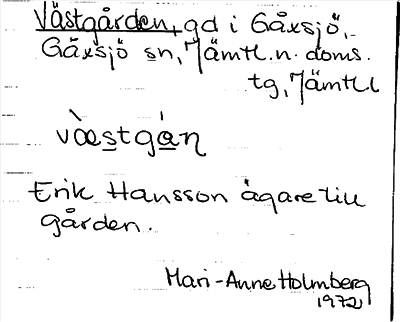 Västgården, gd i Gåxsjö,
Gåxsjö sn, Jämtl. n. doms.
tg, Jämtl. l
væ̀stgán
Erik Hansson ägare till
gården.
Mari-Anne Holmberg
1972